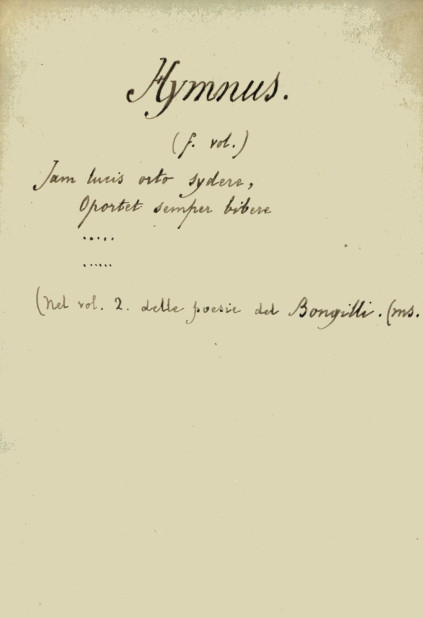 Hymnus.
(f. vol.)
Jam lucis orto sydere,
Oportet semper bibere
.....
......
(Nel vol. 2. delle poesie del Bongilli. (ms.